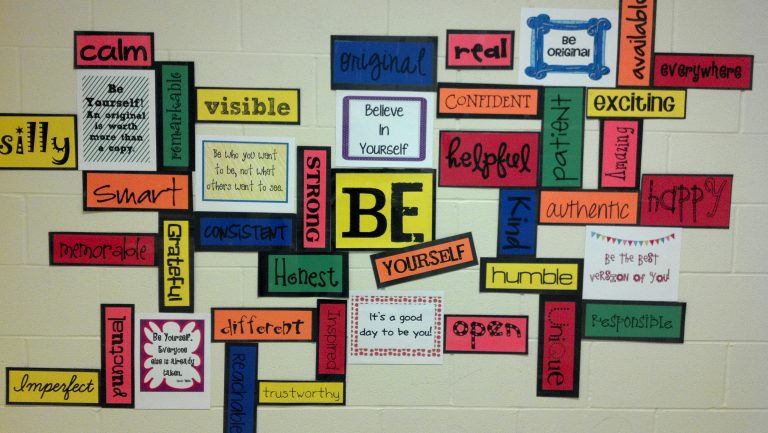 calm
original
real
Be
Original
available
everywhere
Be
Yourself!
An original
is worth
more than
a copy.
remarkable
visible
Believe
In
Yourself
CONFIDENT
patient
exciting
silly
Be who you want
to be, not what
others want to see.
STRONG
helpful
Amazing
Smart
BE
Kind
authentic
HAPPY
memorable
Grateful
CONSISTENT
Honest
YOURSELF
humble
Be the best
version of you!
punctual
Be Yourself.
Everyone
else is already
taken.
different
Inspired
It's a good
day to be you!
open
Unique
Responsible
Imperfect
reachable
trustworthy